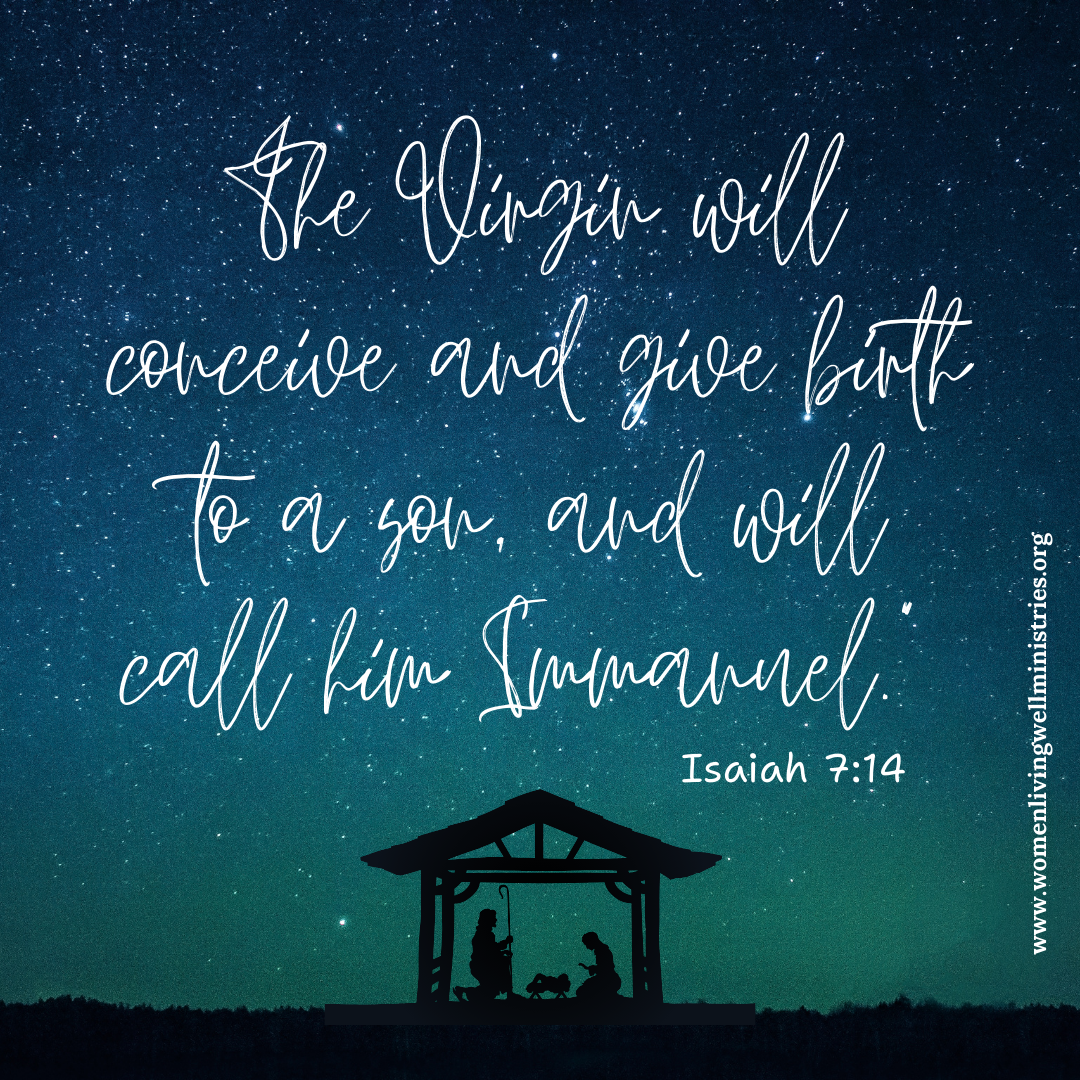 The Virgin will
conceive and give birth
to a son, and will
call him Immanuel."
Isaiah 7:14
www.womenlivingwellministries.org